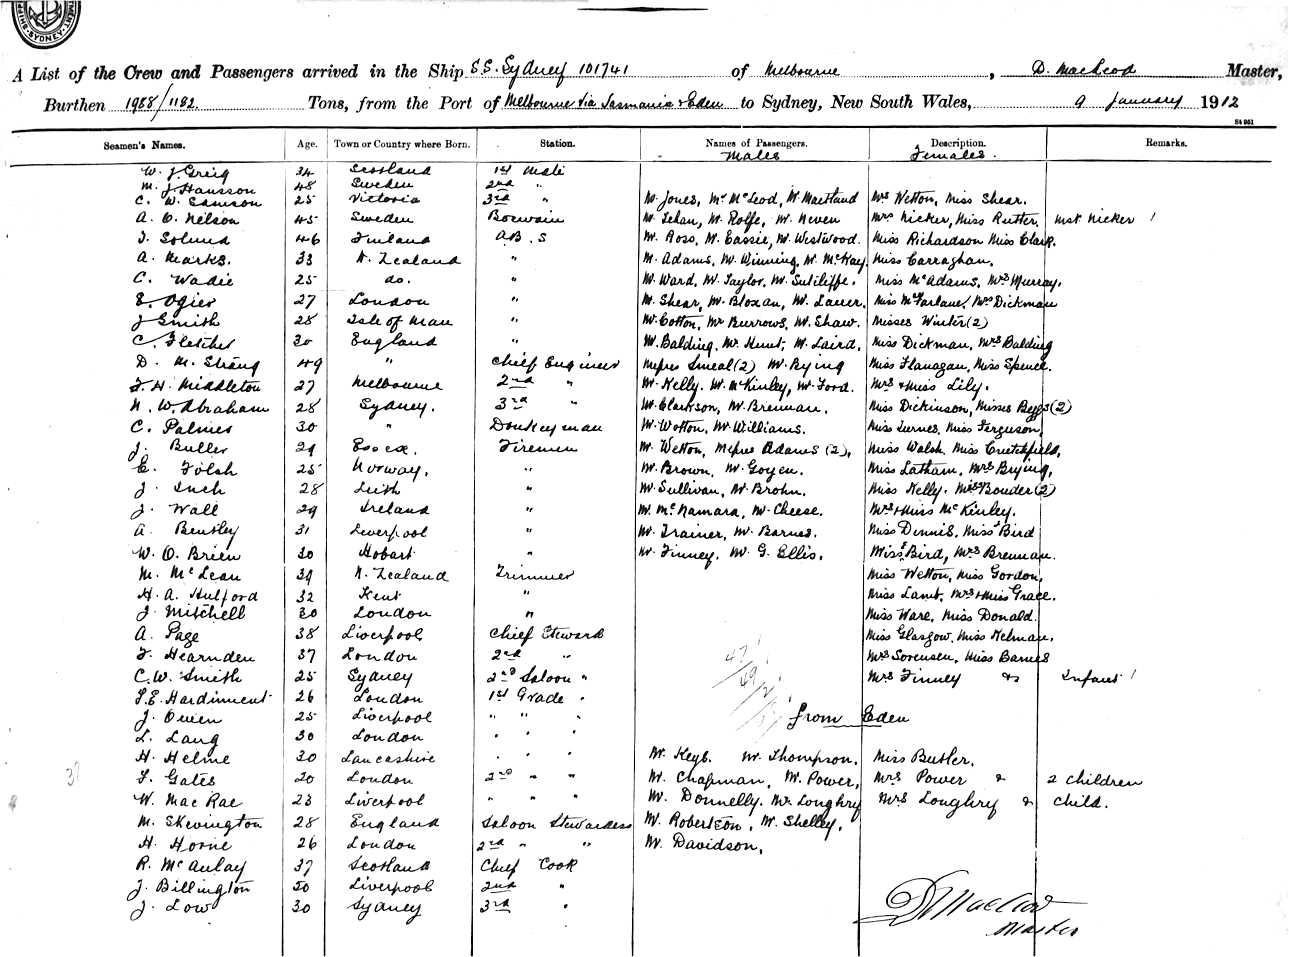 SHIPPING
SYDNEY
A List of the Crew and Passengers arrived in the Ship S.S. Sydney 101741 of Melbourne, D. MacLeod Master,
Burthen 1988/1182 Tons, from the Port of Melbourne via Tasmania & Eden to Sydney, New South Wales, 9 January 1912
St 951
Seamen's Names. Age. Town or Country where Born. Station. Names of Passengers. Description. Remarks.
Males Females.
W. J Greig 34 Scotland 1st Mate
M. J. Hansson 48 Sweden 2nd "
C. W. Samson 25 Victoria 3rd " Mr Jones, Mr McLeod, Mr Maitland Mrs Wetton, Miss Shear.
A. O. Nelson 45 Sweden Boswain Mr Sehan, Mr Rolfe, Mr Neven Mrs Nicker, Miss Rutter. mst Nicker 1
J. Solund 46 Finland A.B.S Mr Ross, Mr Eassie, Mr Westwood. Miss Richardson Miss Clark.
A. Marks. 33 N. Zealand " Mr Adams, Mr Winning, Mr McKay Miss Carraghan.
C. Wadie 25 do. " Mr Ward, Mr Taylor, Mr Sutcliffe. Miss McAdams, Mrs Murray.
E. Ogier 27 London " Mr Shear, Mr Bloxan, Mr Laurer. Miss McFarlane, Mrs Dickman
J Smith 28 Isle of Man " Mr Cotton, Mr Burrows, Mr Shaw. Misses Winter (2)
C. Fletcher 30 England " Mr Balding, Mr Hunt, Mr Laird, Miss Dickman, Mrs Balding
D. M. Strang 49 " Chief Engineer Messrs Smeal (2) Mr Bying Miss Flanagan, Miss Spence.
F. H. Middleton 27 Melbourne 2nd " Mr Kelly. Mr McKinley, Mr Ford. Mrs & Miss Lily.
N. W. Abraham 28 Sydney. 3rd " Mr Clarkson, Mr Brennan. Miss Dickinson, Misses Beggs (2)
C. Palmer 30 " Donkeyman Mr Wotton, Mr Williams. Miss Turner, Miss Ferguson,
J. Buller 29 Essex. Firemen Mr Wetton, Messrs Adams (2), Miss Walsh, Miss Crutchfield,
E. Folsh 25 Norway. " Mr Brown, Mr Goyen. Miss Latham, Mrs Bying,
J. Inch 28 Leith " Mr Sullivan, Mr Brohn. Miss Kelly. Misses Bouder (2)
J. Wall 29 Ireland " Mr McNamara, Mr Cheese. Mrs & Miss McKinley.
A. Bentley 31 Liverpool " Mr Trainer, Mr Barnes. Miss Dennis, Miss Bird
W. O. Brien 30 Hobart " Mr Finney, Mr G. Ellis. Miss Bird, Mrs Brennan.
M. McLean 39 N. Zealand Trimmer Miss Wetton, Miss Gordon,
H. A. Hulford 32 Kent " Miss Lamb, Mrs & Miss Grace.
J. Mitchell 30 London " Miss Ware, Miss Donald.
A. Page 38 Liverpool Chief Steward Miss Glasgow, Miss Kelman,
F. Hearnden 37 London 2nd " Mrs Sorensen, Miss Barnes
C. W. Smith 25 Sydney 2nd Saloon " 47 Mrs Finney & Infant 1
F. E. Hardinment 26 London 1st Grade " 49
J. Owen 25 Liverpool " " " from Eden
L. Lang 30 London " " "
H. Helme 30 Lancashire " " " Mr Keys. Mr Thompson, Miss Butler.
F. Gates 20 London 2nd " " Mr Chapman, Mr Power, Mrs Power & 2 children
W. Mac Rae 23 Liverpool " " " Mr Donnelly. Mr Loughry Mrs Loughry & child.
M. Skevington 28 England Saloon Stewardess Mr Robertson, Mr Shelley,
H. Horne 26 London 2nd " " Mr Davidson,
R. McAulay 37 Scotland Chief Cook
J. Billington 50 Liverpool 2nd "
J. Low 30 Sydney 3rd "
D MacLeod
Master